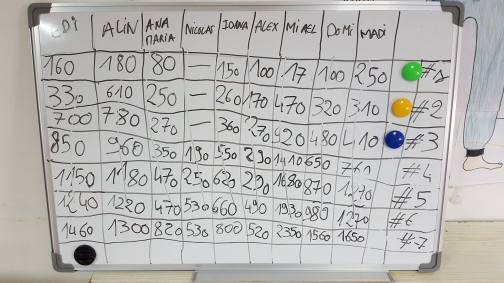 EDI ALIN ANA MARIA NICOLAS IOANA ALEX MIREL DOMI MADI
160 180 80 — 150 100 17 100 250 #1
330 610 250 — 260 170 470 320 310 #2
700 780 270 — 360 270 920 480 410 #3
850 960 350 190 550 290 1410 650 760 #4
1150 1180 470 250 620 290 1680 870 1270 #5
1240 1220 470 530 660 490 1930 980 1270 #6
1460 1300 820 530 800 520 2350 1560 1650 #7